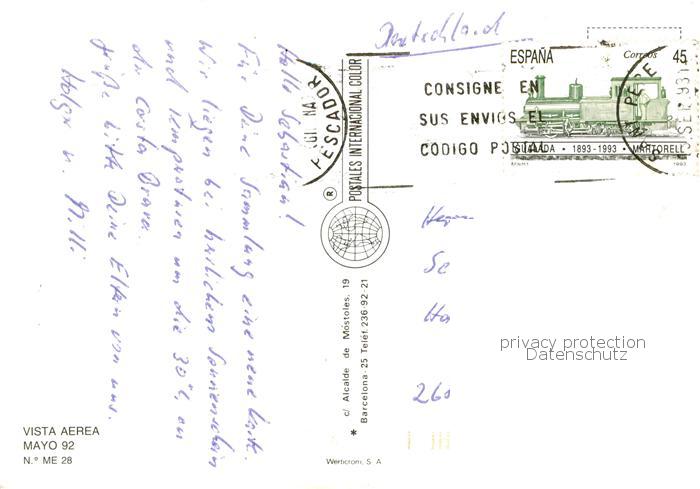 Hallo Sebastian!
Für Deine Sammlung eine neue Karte.
Wir liegen bei herrlichem Sonnenschein
und Temperaturen um die 30°C, an
der Costa Brava.
Grüße bitte Deine Eltern von uns.
Holger u.
Deutschland
ESPAÑA
Correos
45
CONSIGNE EN
SUS ENVIOS EL
CODIGO POSTAL
PESCADOR
GRANADA • 1893-1993 • MARTORELL
1993
POSTALES INTERNACIONAL COLOR
®
c/ Alcalde de Móstoles, 19
Barcelona-25 Teléf. 236-92-21
*
Herrn
Se
Ha
260
privacy protection
Datenschutz
VISTA AEREA
MAYO 92
N.º ME 28
Werticrom, S A